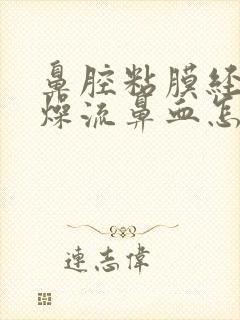 鼻腔粘膜经
燥流鼻血怎
連志偉